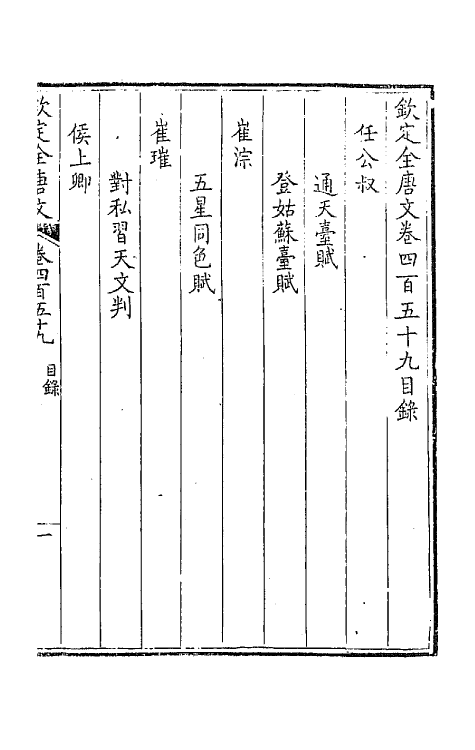 欽定全唐文卷四百五十九目錄
任公叔
通天臺賦
登姑蘇臺賦
崔淙
五星同色賦
崔璀
對私習天文判
侯上卿
欽定全唐文 卷四百五十九 目錄 一